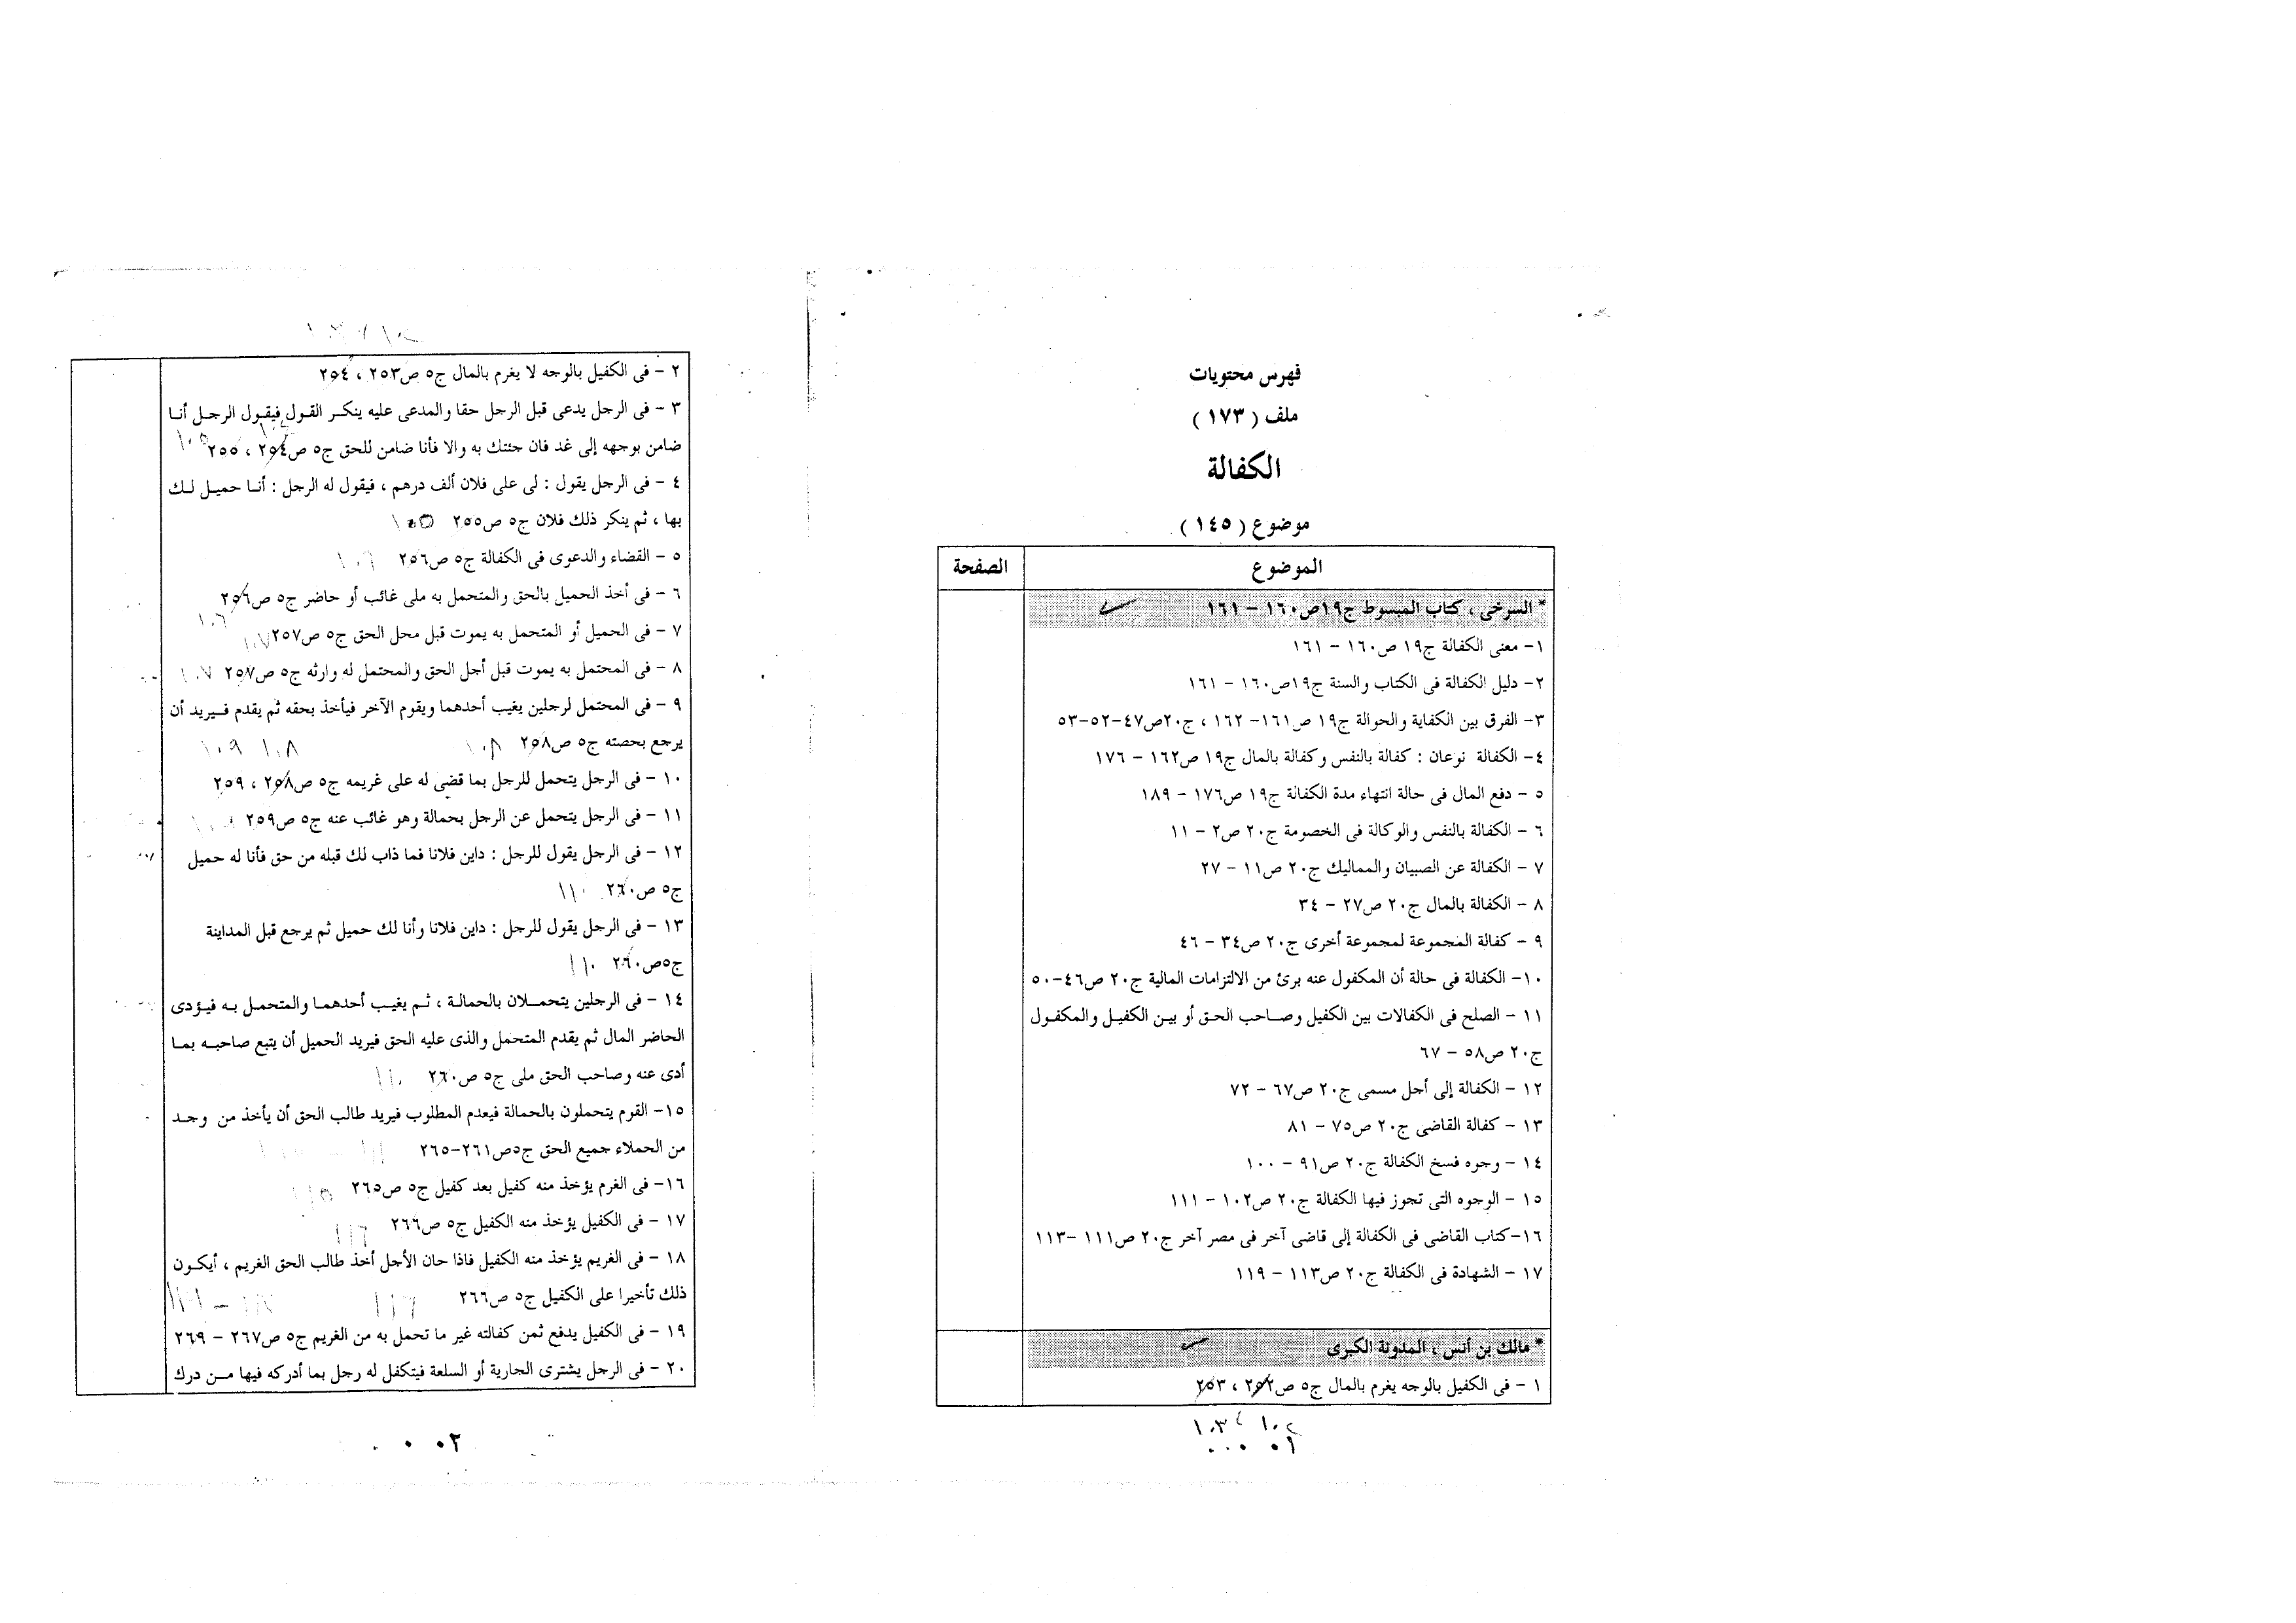 فهرس محتويات
ملف ( ١٧٣ )
الكفالة
موضوع ( ١٤٥ )
الموضوع
الصفحة
* السرخى ، كتاب المبسوط ج١٩ص١٦٠ – ١٦١
١– معنى الكفالة ج١٩ ص١٦٠ – ١٦١
٢– دليل الكفالة فى الكتاب والسنة ج١٩ص١٦٠ – ١٦١
٣– الفرق بين الكفاية والحوالة ج١٩ ص١٦١– ١٦٢ ، ج٢٠ص٤٧–٥٢–٥٣
٤– الكفالة نوعان : كفالة بالنفس وكفالة بالمال ج١٩ ص١٦٢ – ١٧٦
٥ – دفع المال فى حالة انتهاء مدة الكفالة ج١٩ ص١٧٦ – ١٨٩
٦ – الكفالة بالنفس والوكالة فى الخصومة ج٢٠ ص٢ – ١١
٧ – الكفالة عن الصبيان والمماليك ج٢٠ ص١١ – ٢٧
٨ – الكفالة بالمال ج٢٠ ص٢٧ – ٣٤
٩ – كفالة المجموعة لمجموعة أخرى ج٢٠ ص٣٤ – ٤٦
١٠– الكفالة فى حالة أن المكفول عنه برئ من الالتزامات المالية ج٢٠ ص٤٦–٥٠
١١ – الصلح فى الكفالات بين الكفيل وصاحب الحق أو بين الكفيل والمكفول
ج٢٠ ص٥٨ – ٦٧
١٢ – الكفالة إلى أجل مسمى ج٢٠ ص٦٧ – ٧٢
١٣ – كفالة القاضى ج٢٠ ص٧٥ – ٨١
١٤ – وجوه فسخ الكفالة ج٢٠ ص٩١ – ١٠٠
١٥ – الوجوه التى تجوز فيها الكفالة ج٢٠ ص١٠٢ – ١١١
١٦–كتاب القاضى فى الكفالة إلى قاضى آخر فى مصر آخر ج٢٠ ص١١١ –١١٣
١٧ – الشهادة فى الكفالة ج٢٠ ص١١٣ – ١١٩
* مالك بن أنس ، المدونة الكبرى
١ – فى الكفيل بالوجه يغرم بالمال ج٥ ص٢٥٢ ، ٢٥٣
١٠٢ ، ١٠٣
٠٠٠٠١
٢ – فى الكفيل بالوجه لا يغرم بالمال ج٥ ص٢٥٣ ، ٢٥٤
٣ – فى الرجل يدعى قبل الرجل حقا والمدعى عليه ينكر القول فيقول الرجل أنا
ضامن بوجهه إلى غد فان جئتك به والا فأنا ضامن للحق ج٥ ص٢٥٤ ، ٢٥٥ ١٠٥
٤ – فى الرجل يقول : لى على فلان ألف درهم ، فيقول له الرجل : أنا حميل لك
بها ، ثم ينكر ذلك فلان ج٥ ص٢٥٥
٥ – القضاء والدعوى فى الكفالة ج٥ ص٢٥٦ ١٠٦
٦ – فى أخذ الحميل بالحق والمتحمل به ملى غائب أو حاضر ج٥ ص٢٥٦
١٠٦
٧ – فى الحميل أو المتحمل به يموت قبل محل الحق ج٥ ص٢٥٧ ١٠٧
٨ – فى المحتمل به يموت قبل أجل الحق والمحتمل له وارثه ج٥ ص٢٥٧ ١٠٧
٩ – فى المحتمل لرجلين يغيب أحدهما ويقوم الآخر فيأخذ بحقه ثم يقدم فيريد أن
يرجع بحصته ج٥ ص٢٥٨ ١٠٨ ١٠٨ ١٠٩
١٠ – فى الرجل يتحمل للرجل بما قضى له على غريمه ج٥ ص٢٥٨ ، ٢٥٩
١١ – فى الرجل يتحمل عن الرجل بحمالة وهو غائب عنه ج٥ ص٢٥٩
١٢ – فى الرجل يقول للرجل : داين فلانا فما ذاب لك قبله من حق فأنا له حميل
ج٥ ص٢٦٠ ١١٠
١٣ – فى الرجل يقول للرجل : داين فلانا وأنا لك حميل ثم يرجع قبل المداينة
ج٥ص٢٦٠ ١١٠
١٤ – فى الرجلين يتحملان بالحمالة ، ثم يغيب أحدهما والمتحمل به فيؤدى
الحاضر المال ثم يقدم المتحمل والذى عليه الحق فيريد الحميل أن يتبع صاحبه بما
أدى عنه وصاحب الحق ملى ج٥ ص٢٦٠ ١١٠
١٥– القوم يتحملون بالحمالة فيعدم المطلوب فيريد طالب الحق أن يأخذ من وجد
من الحملاء جميع الحق ج٥ص٢٦١–٢٦٥
١٦– فى الغرم يؤخذ منه كفيل بعد كفيل ج٥ ص٢٦٥ ١١٥
١٧ – فى الكفيل يؤخذ منه الكفيل ج٥ ص٢٦٦ ١١٦
١٨ – فى الغريم يؤخذ منه الكفيل فاذا حان الأجل أخذ طالب الحق الغريم ، أيكون
ذلك تأخيرا على الكفيل ج٥ ص٢٦٦ ١١٦
١٩ – فى الكفيل يدفع ثمن كفالته غير ما تحمل به من الغريم ج٥ ص٢٦٧ – ٢٦٩
٢٠ – فى الرجل يشترى الجارية أو السلعة فيتكفل له رجل بما أدركه فيها من درك
٠٠٠٠٢